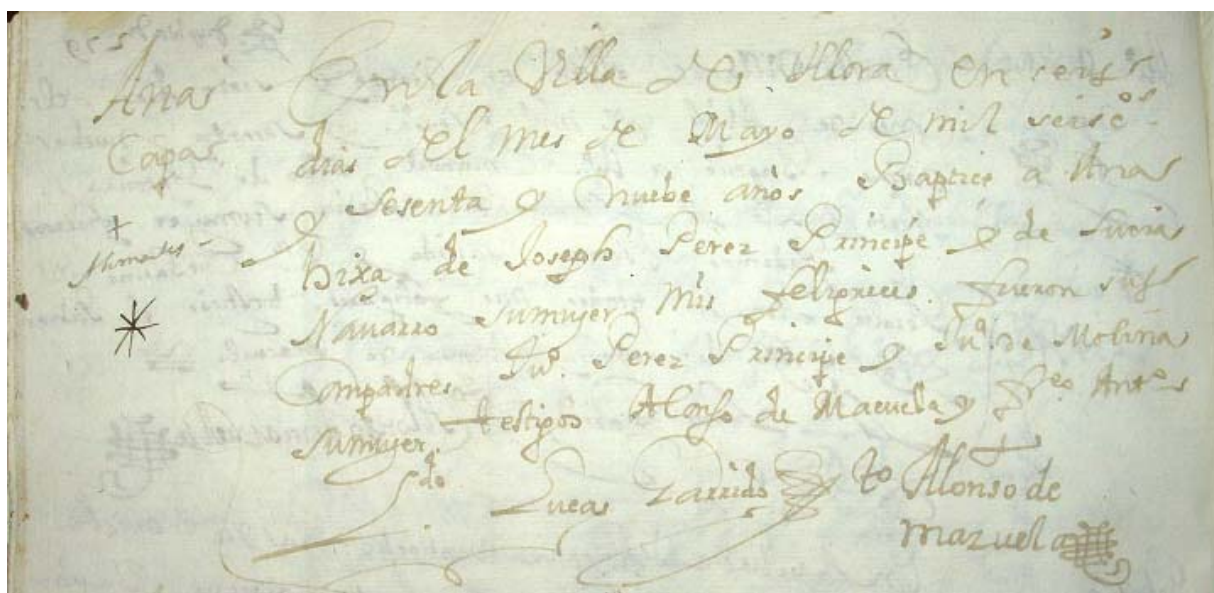 Ana
Capas
En la Villa de Yllora en seis
dias del mes de Mayo de mil seisc.os
y sesenta y nuebe años Baptice a Ana
hixa de Joseph Perez Principe y de Lucia
Navarro su mujer mis feligrieces. fueron sus
Compadres Ju.o Perez Principe y Ju.a de Molina
su mujer. testigos Alonso de Macuela y Fr.co Ant.o
L.do Lucas Garrido
to Alonso de
mazuela